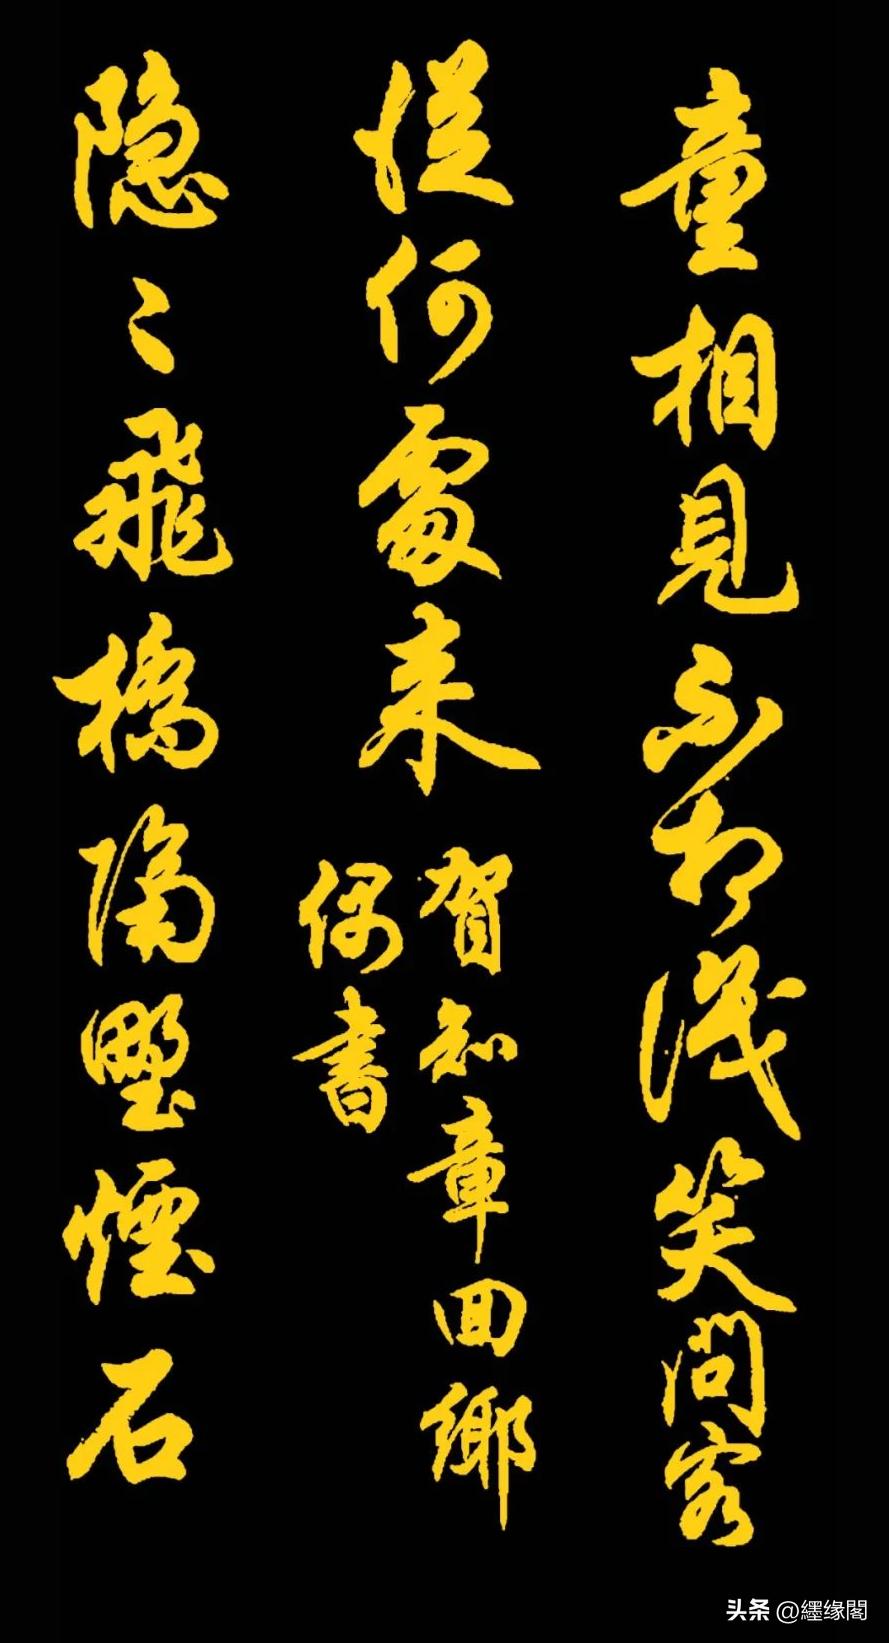 童相見不相識笑問客
從何處来
賀知章回鄉
偶書
隐々飛橋隔墅煙石
头条 @缘閣